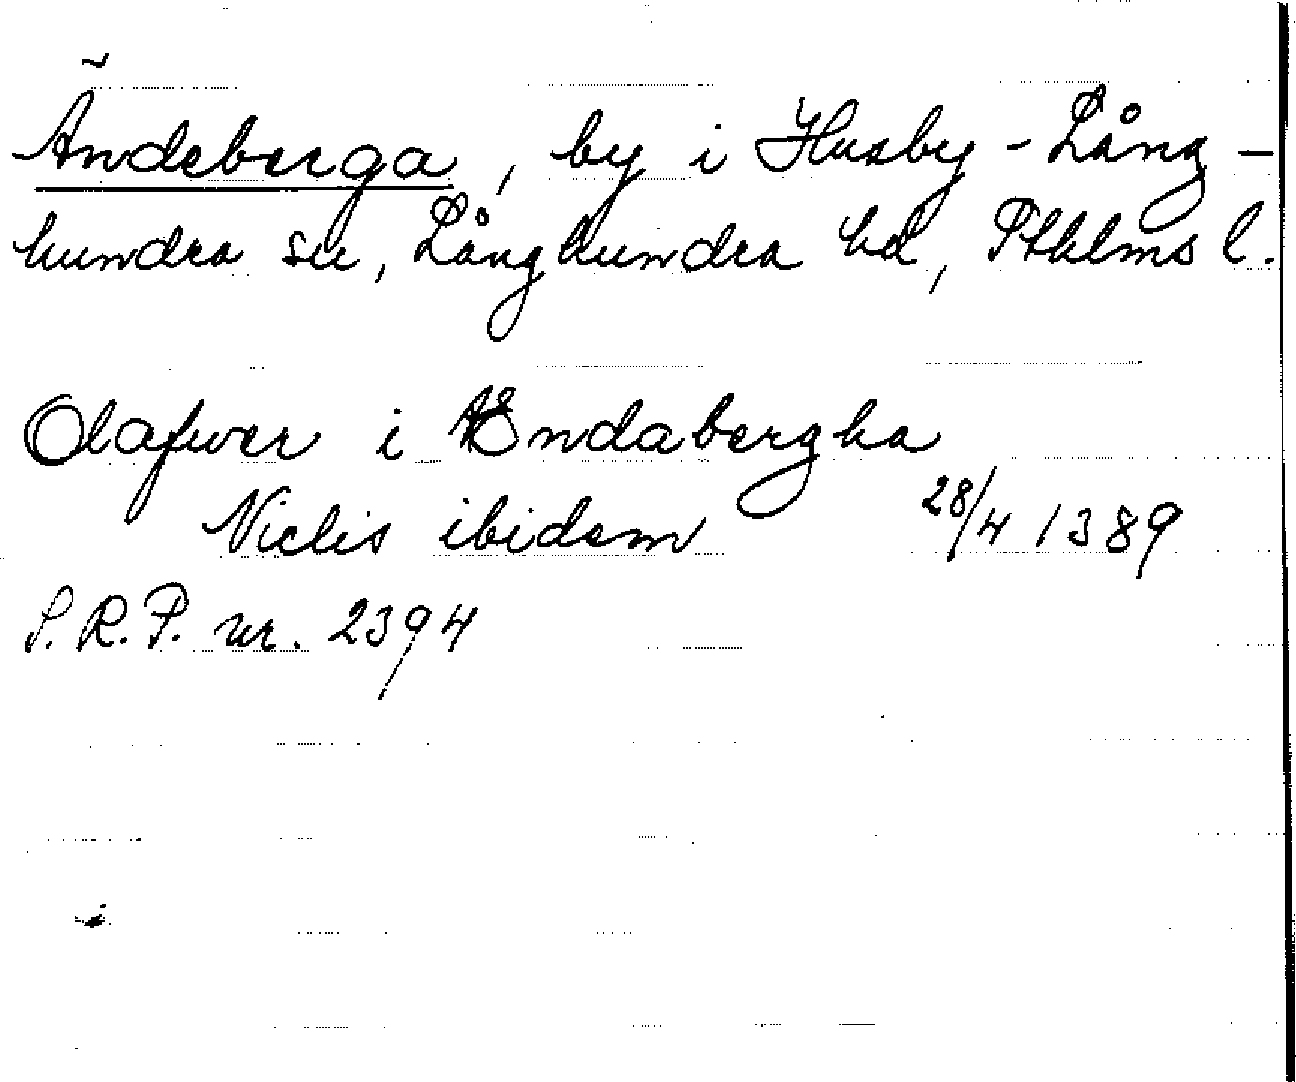 Ändeberga, by i Husby-Lång-
hundra sn, Långhundra hd, Sthlms l.
Olafwer i Ændabergha
Niclis ibidem 28/4 1389
S.R.P. nr. 2394